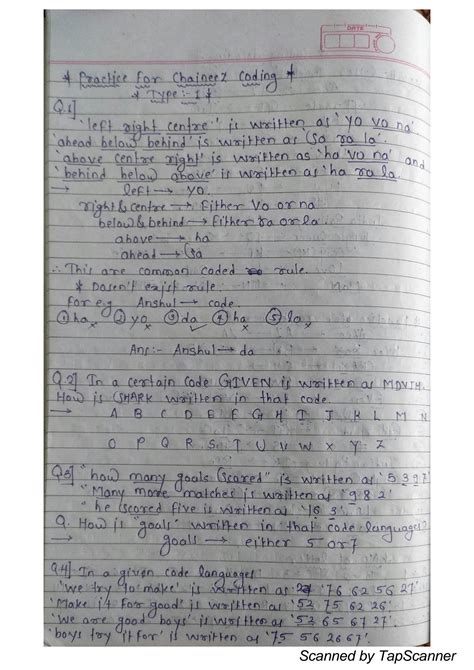 DATE
* Practice for Chaineez Coding *
* Type:- 1 *
Q.1] 'left right centre' is written as 'yo vo na'
'ahead below behind' is written as 'sa ra la'.
'above centre right' is written as 'ha vo na' and
'behind below above' is written as 'ha ra la.
→ left → yo.
right & centre → Either vo or na
below & behind → Either ra or la
above → ha
ahead → sa
∴ This are common coded rule.
* Dosen't exist rule:
for e.g Anshul → code.
① ha x ② yo x ③ da ✓ ④ ha x ⑤ la x
Ans:- Anshul → da
Q.2] In a certain code GIVEN is written as
How is SHARK written in that code.
→ A B C D E F G H I J K L M N
O P Q R S T U V W X Y Z
Q.3] "how many goals scored" is written as '5 3 9 7'
"Many more matches is written as '9 8 2'
"he scored five is written as '1 6 3'.
Q. How is "goals" written in that code languages?
→ goals → either 5 or 7
Q.4] In a given code languages
'we try to make' is written as '76 62 56 27'
'Make it for good' is written as '53 75 62 26'
'we are good boys' is written as
'boys try it for' is written as '75 56 26 67'
Scanned by TapScanner